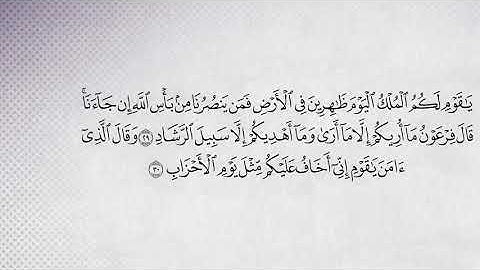 يَـٰقَوْمِ لَكُمُ ٱلْمُلْكُ ٱلْيَوْمَ ظَـٰهِرِينَ فِى ٱلْأَرْضِ فَمَن يَنصُرُنَا مِنۢ بَأْسِ ٱللَّهِ إِن جَآءَنَا ۚ
قَالَ فِرْعَوْنُ مَآ أُرِيكُمْ إِلَّا مَآ أَرَىٰ وَمَآ أَهْدِيكُمْ إِلَّا سَبِيلَ ٱلرَّشَادِ ﴿٢٩﴾ وَقَالَ ٱلَّذِىٓ
ءَامَنَ يَـٰقَوْمِ إِنِّىٓ أَخَافُ عَلَيْكُم مِّثْلَ يَوْمِ ٱلْأَحْزَابِ ﴿٣٠﴾